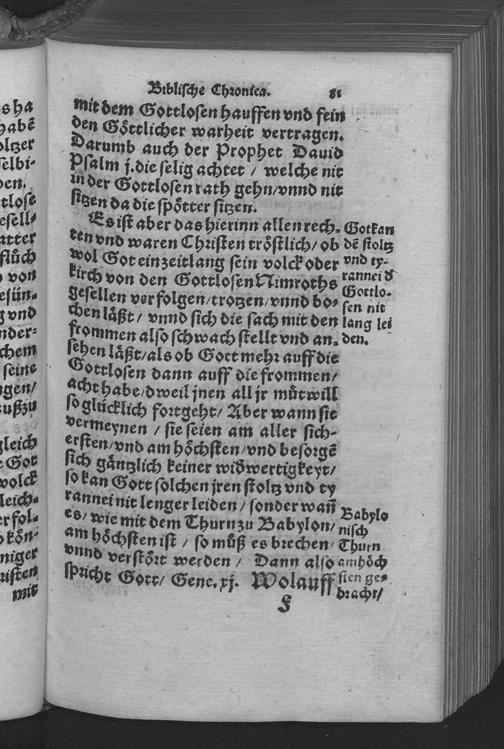 Biblische Chronica. 81
mit dem Gottlosen hauffen vnd fein
den Göttlicher warheit vertragen.
Darumb auch der Prophet David
Psalm j. die selig achtet / welche nit
in der Gottlosen rath gehn / vnnd nit
sitzen da die spötter sitzen.
Es ist aber das hierinn allen rech-
ten vnd waren Christen tröstlich / ob
wol Got ein zeitlang sein volck oder
kirch von den Gottlosen Nimroths
gesellen verfolgen / trotzen / vnnd bo-
chen läßt / vnnd sich die sach mit den
frommen also schwach stellt vnd an-
sehen läßt / als ob Gott mehr auff die
Gottlosen dann auff die frommen /
acht habe / dweil jnen all jr můtwill
so glücklich fortgeht / Aber wann sie
vermeynen / sie seien am aller sich-
ersten / vnd am höchsten / vnd besorgē
sich gäntzlich keiner widwertigkeyt /
so kan Gott solchen jren stoltz vnd ty
rannei nit lenger leiden / sonder wañ
es / wie mit dem Thurn zu Babylon /
am höchsten ist / so můß es brechen /
vnnd verstört werden / Dann also
spricht Gott / Gene. xj. Wolauff
Got kan
dē stoltz
vnd ty-
rannei d
Gottlo-
sen nit
lang lei
den.
Babylo
nisch
Thurn
am höch
sten ge-
bracht /
ß ha
habē
oltzer
selbi-
den.
tlose
esell-
atter
flůch
von
gsün-
g vnd
nder-
chem
seine
ngen /
ußzu
gleich
e Got
volck
leich-
erfol-
kön-
niger
risten
mit